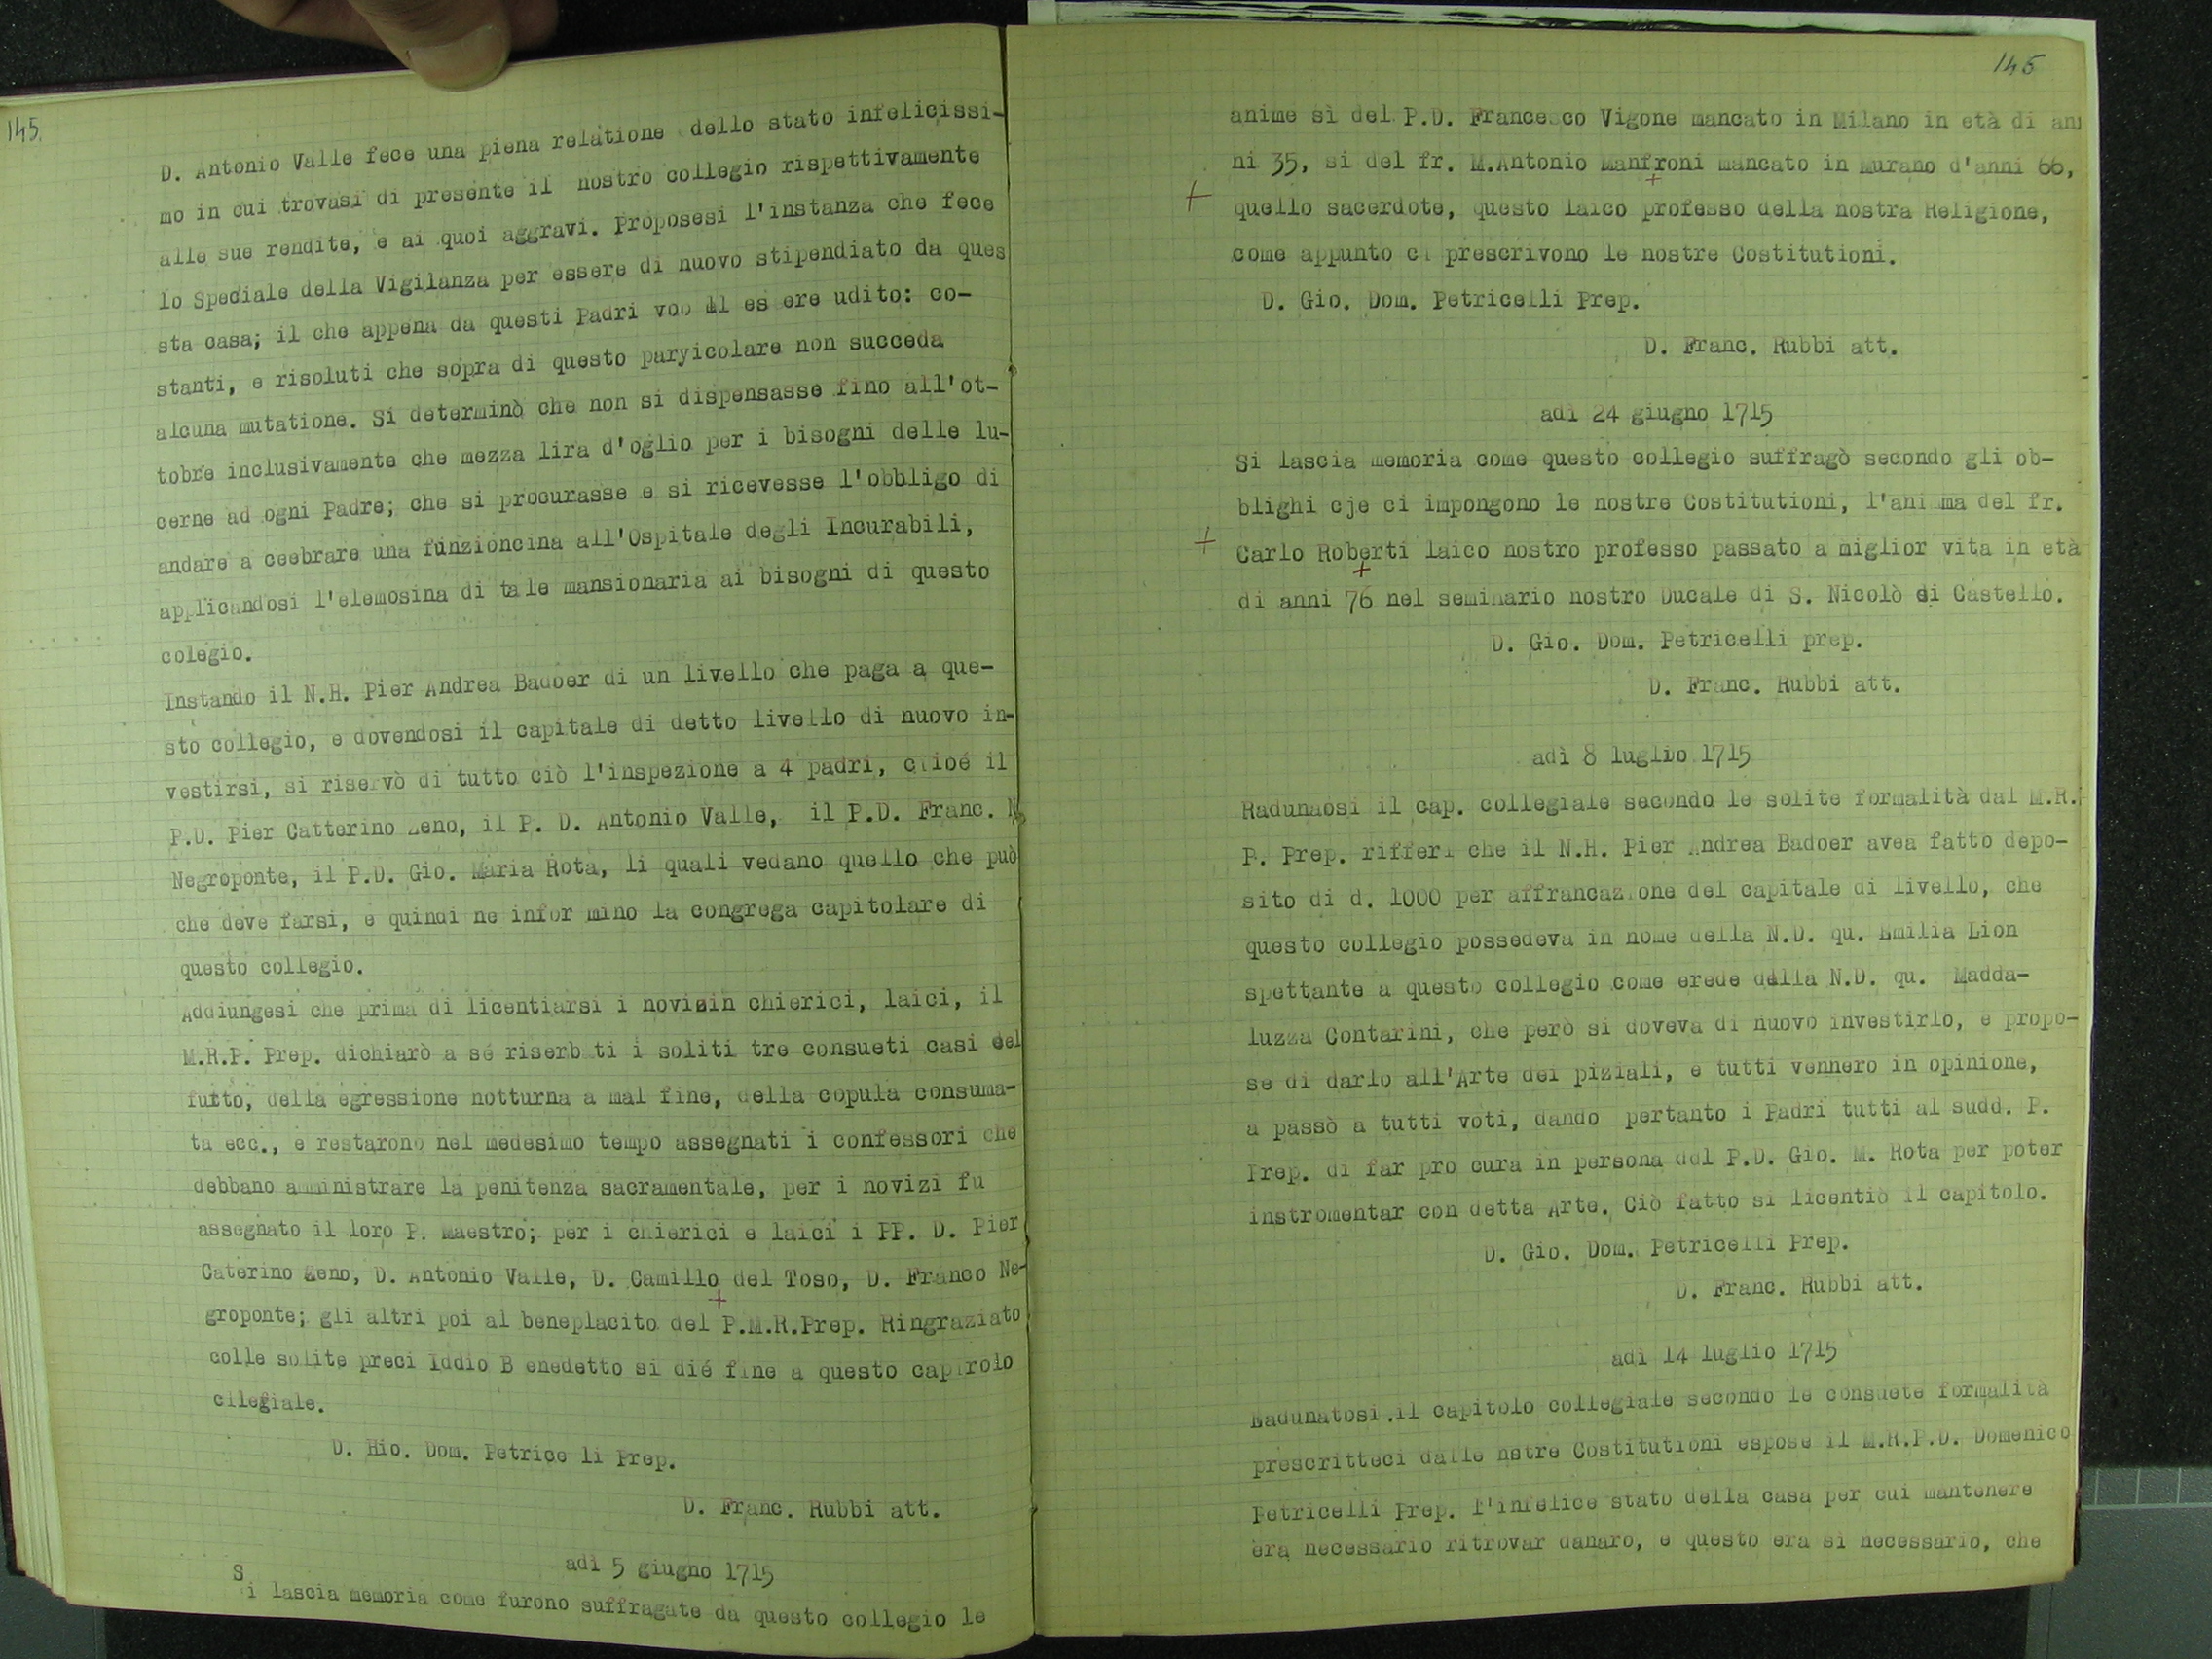 145.
D. Antonio Valle fece una piena relatione dello stato infelicissi-
mo in cui trovasi di presente il nostro collegio rispettivamente
alle sue rendite, e ai quoi aggravi. Proposesi l'instanza che fece
lo Speciale della Vigilanza per essere di nuovo stipendiato da ques
sta casa; il che appena da questi Padri es ere udito: co-
stanti, e risoluti che sopra di questo paryicolare non succeda
alcuna mutatione. Si determinò che non si dispensasse fino all'ot-
tobre inclusivamente che mezza lira d'oglio per i bisogni delle lu-
cerne ad ogni Padre; che si procurasse e si ricevesse l'obbligo di
andare a ceebrare una funzioncina all'Ospitale degli Incurabili,
applicandosi l'elemosina di tale mansionaria ai bisogni di questo
colegio.
Instando il N.H. Pier Andrea Badoer di un livello che paga a que-
sto collegio, e dovendosi il capitale di detto livello di nuovo in-
vestirsi, si riservò di tutto ciò l'inspezione a 4 padri, cioé il
P.D. Pier Catterino Zeno, il P. D. Antonio Valle, il P.D. Franc. N
Negroponte, il P.D. Gio. Maria Rota, li quali vedano quello che può
che deve farsi, e quindi ne infor mino la congrega capitolare di
questo collegio.
Addiungesi che prima di licentiarsi i novizin chierici, laici, il
M.R.P. Prep. dichiarò a sé riserbati i soliti tre consueti casi del
furto, della egressione notturna a mal fine, della copula consuma-
ta ecc., e restarono nel medesimo tempo assegnati i confessori che
debbano amministrare la penitenza sacramentale, per i novizi fu
assegnato il loro P. Maestro; per i chierici e laici i PP. D. Pier
Caterino Zeno, D. Antonio Valle, D. Camillo del Toso, D. Franco Ne-
+
groponte; gli altri poi al beneplacito del P.M.R.Prep. Ringraziato
colle solite preci Iddio B enedetto si dié fine a questo capirolo
cllegiale.
D. Hio. Dom. Petrice li Prep.
D. Franc. Rubbi att.
adì 5 giugno 1715
Si lascia memoria come furono suffragate da questo collegio le
146
anime sì del P.D. Francesco Vigone mancato in Milano in età di an
ni 35, si del fr. M.Antonio Manfroni mancato in Murano d'anni 66,
+ +
quello sacerdote, questo laico professo della nostra Religione,
come appunto ci prescrivono le nostre Costitutioni.
D. Gio. Dom. Petricelli Prep.
D. Franc. Rubbi att.
adì 24 giugno 1715
Si lascia memoria come questo collegio suffragò secondo gli ob-
blighi cje ci impongono le nostre Costitutioni, l'ani ma del fr.
+ Carlo Roberti laico nostro professo passato a miglior vita in età
+
di anni 76 nel seminario nostro Ducale di S. Nicolò di Castello.
D. Gio. Dom. Petricelli prep.
D. Franc. Rubbi att.
adì 8 luglio 1715
Radunaosi il cap. collegiale secondo le solite formalità dal M.R.
P. Prep. rifferì che il N.H. Pier Andrea Badoer avea fatto depo-
sito di d. 1000 per affrancazione del capitale di livello, che
questo collegio possedeva in nome della N.D. qu. Emilia Lion
spettante a questo collegio come erede della N.D. qu. Madda-
luzza Contarini, che però si doveva di nuovo investirlo, e propo-
se di darlo all'Arte dei piziali, e tutti vennero in opinione,
a passò a tutti voti, dando pertanto i Padri tutti al sudd. P.
Prep. di far pro cura in persona del P.D. Gio. M. Rota per poter
instromentar con detta Arte. Ciò fatto si licentiò il capitolo.
D. Gio. Dom. Petricelli Prep.
D. Franc. Rubbi att.
adì 14 luglio 1715
Radunatosi il capitolo collegiale secondo le consuete formalità
prescritteci dalle nstre Costitutioni espose il M.R.P.D. Domenico
Petricelli Prep. l'infelice stato della casa per cui mantenere
era necessario ritrovar danaro, e questo era sì necessario, che